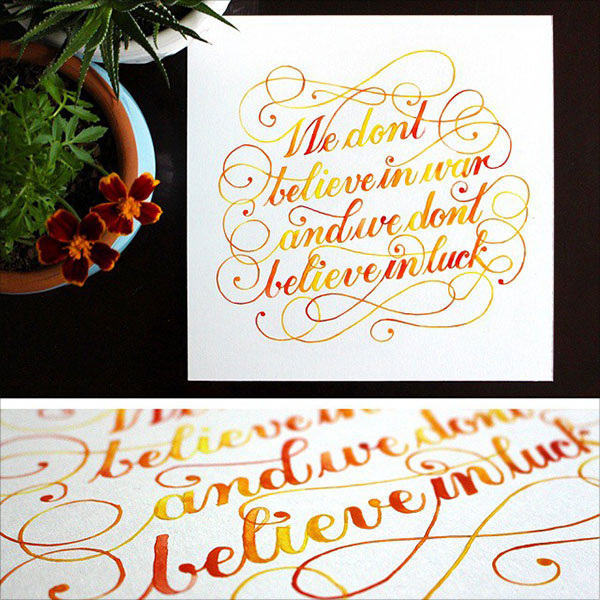 We dont
believe in war
and we dont
believe in luck
We dont
believe in
and we dont
believe in luck